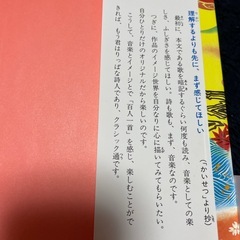 理解するよりも先に、まず感じてほしい
（「かいせつ」より抄）
最初に、本文である歌を暗記するぐらい何度も読み、音楽としての楽
しさ、ふしぎさを感じてほしい。詩も歌も、まず、音楽なのです。
つぎに、作品のイメージ世界を自分なりに心に描いてみてもらいたい。
自分ひとりだけのオリジナルだから楽しいのです。
こうして、音楽とイメージとで「百人一首」を感じ、楽しむことがで
きれば、もう君はりっぱな詩人であり、クラシック通です。